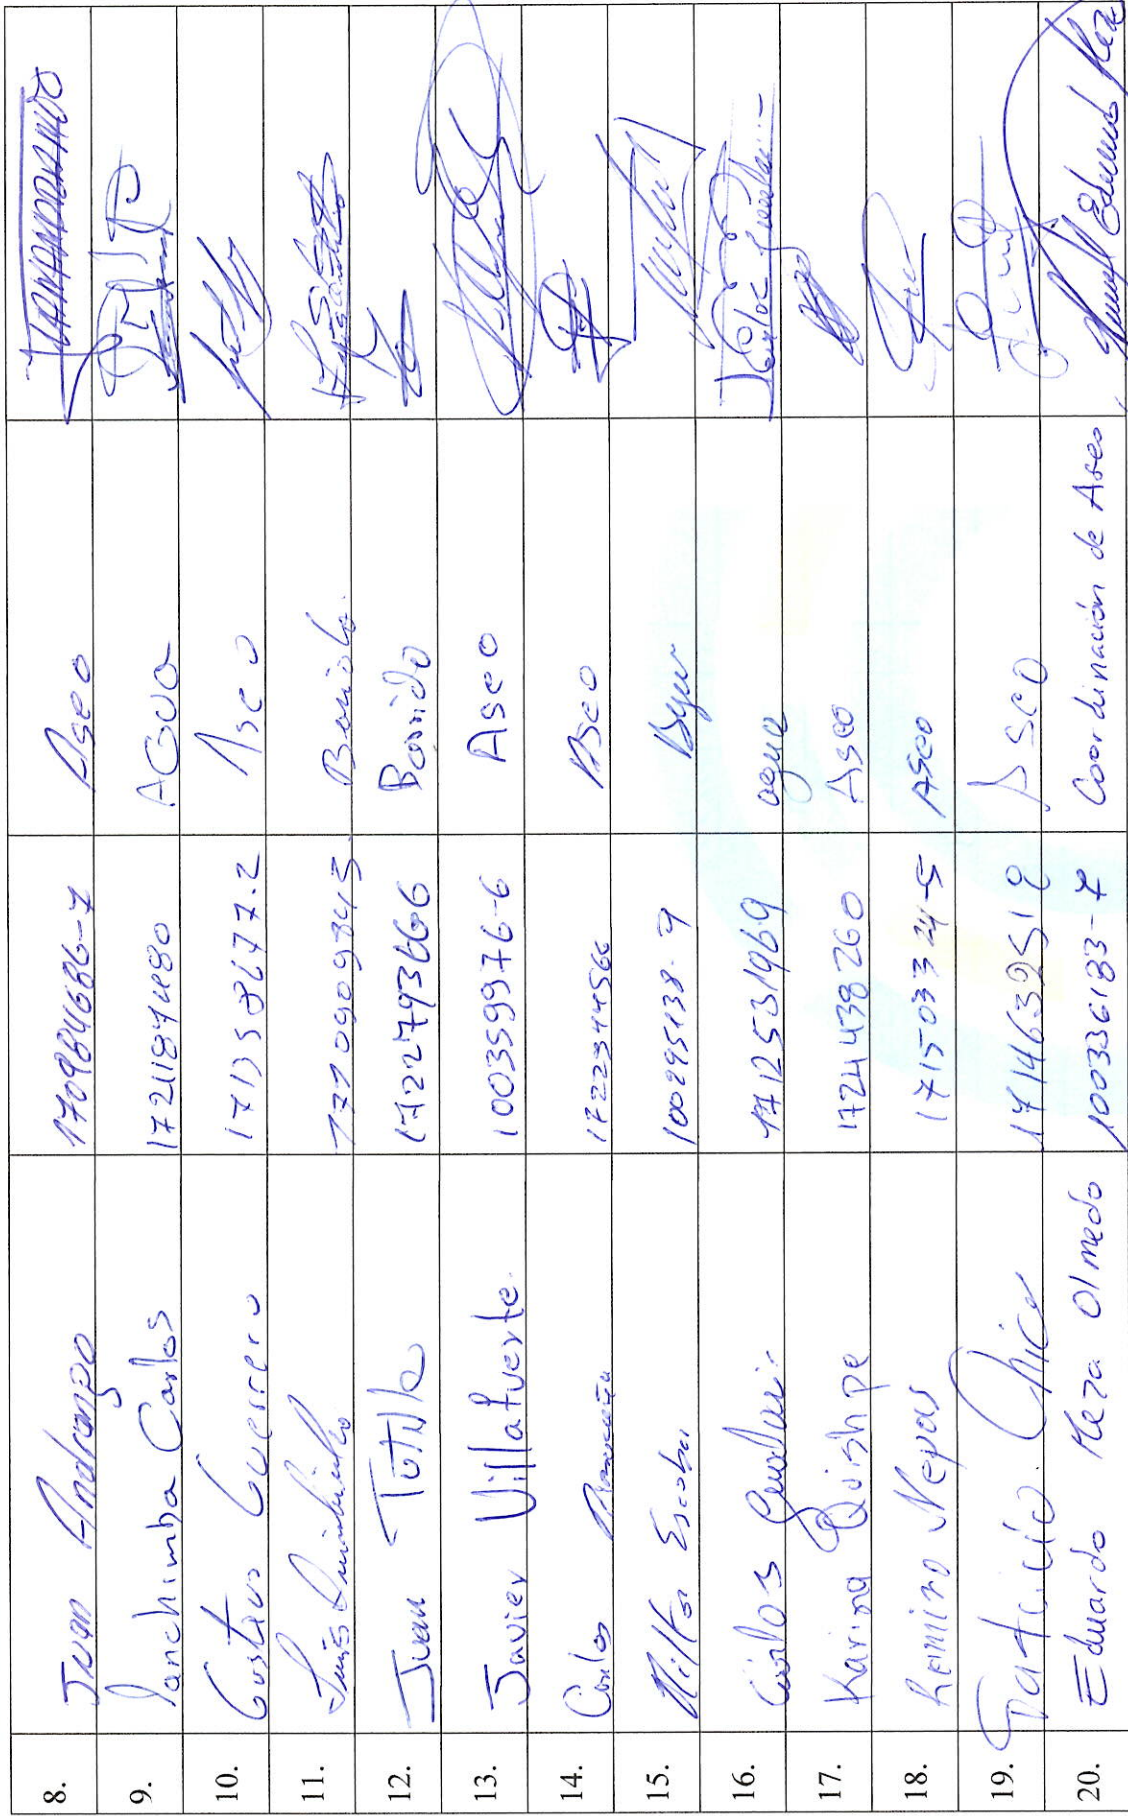 8. Juan Andrango 170984686-7 Aseo JUANANDRANGO
9. Lanchimba Carlos 1721189480 AGUA
10. Gustavo Guerrero 171358677-2 Aseo
11. Luis 1710909843 Barrido
12. Juan Tutillo 1722793666 Barrido
13. Javier Villafuerte. 100359976-6 Aseo
14. Carlos 1722344566 Aseo
15. Milton Escobar 100295138-9
16. Carlos 1712531969 agua
17. Karina Quishpe 1724438260 Aseo
18. Ramiro Nepas 171503324-5 Aseo
19. Patricio Chico 1714639518 Aseo
20. Eduardo Meza Olmedo 100336183-7 Coordinación de Aseo